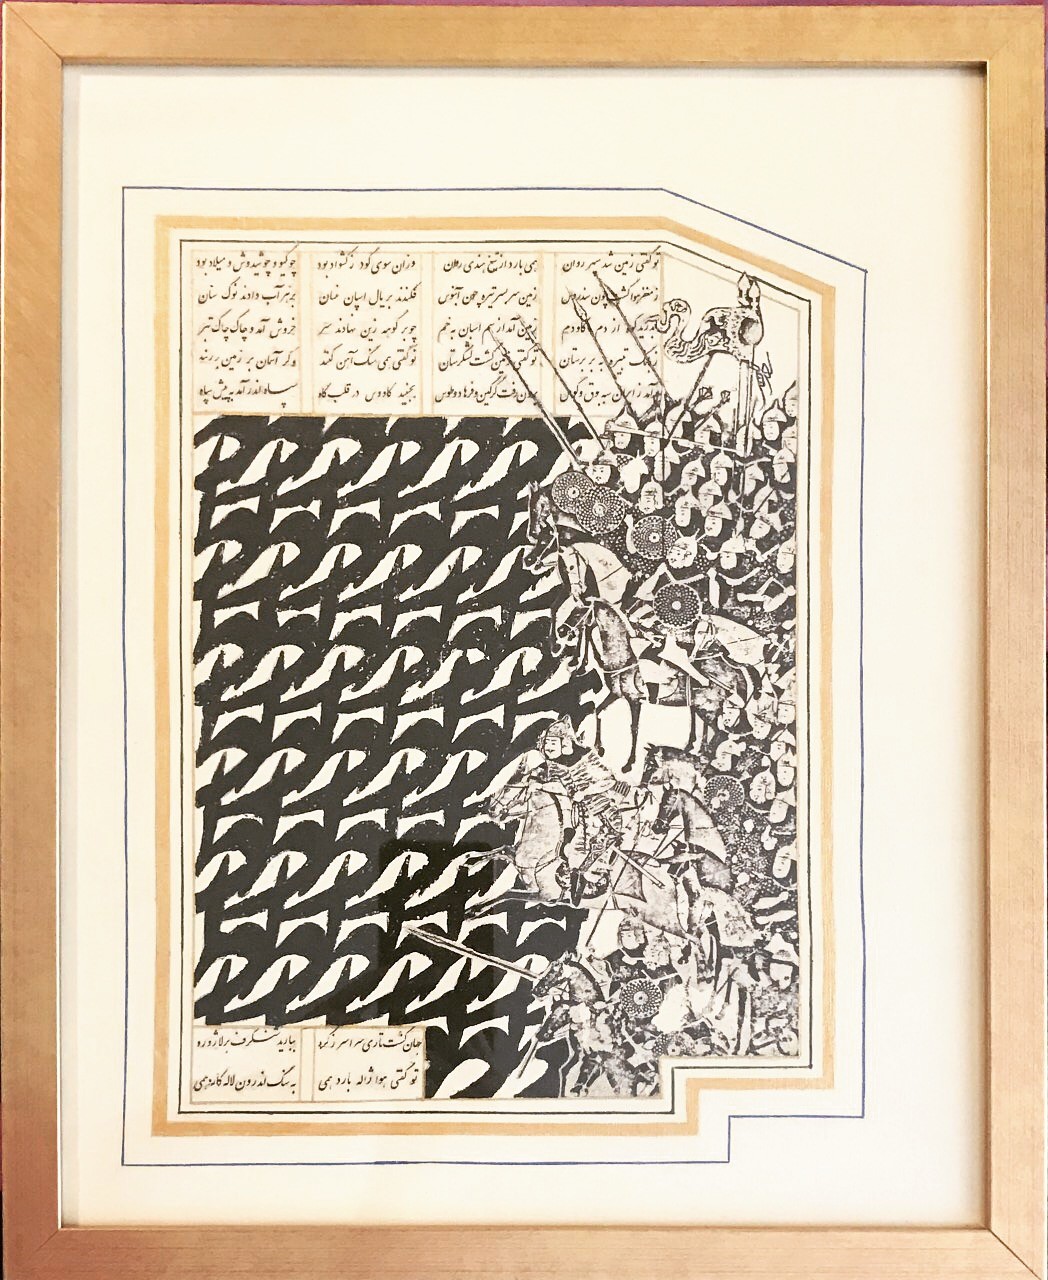 تو گفتی زمین شد سپهر روان همی بارد از تیغ هندی روان وزان سوی گودرز کشواد بود چو گیو و چو شیدوش و میلاد بود
هوا زمین سر بسر تیره چون آبنوس فکندند بر یال اسپان عنان بزهر آب دادند نوک سنان
از دم گاودم زمین آمد از سم اسپان به خم چو بر کوهه زین نهادند سر خروش آمد و چاک چاک تبر
ببر بیرستان تو گفتی زمین گشت لشکرستان تو گفتی همی سنگ آهن کند وگر آسمان بر زمین بر زند
برآمد ز ایران سپه بوق و کوس برون رفت گرگین و فرهاد و طوس بجنبید کاووس در قلب گاه سپاه اندر آمد به پیش سپاه
جهان گشت تاری سراسر ز گرد ببارید شنگرف بر لاژورد
تو گفتی هوا ژاله بارد همی به سنگ اندرون لاله کارد همی